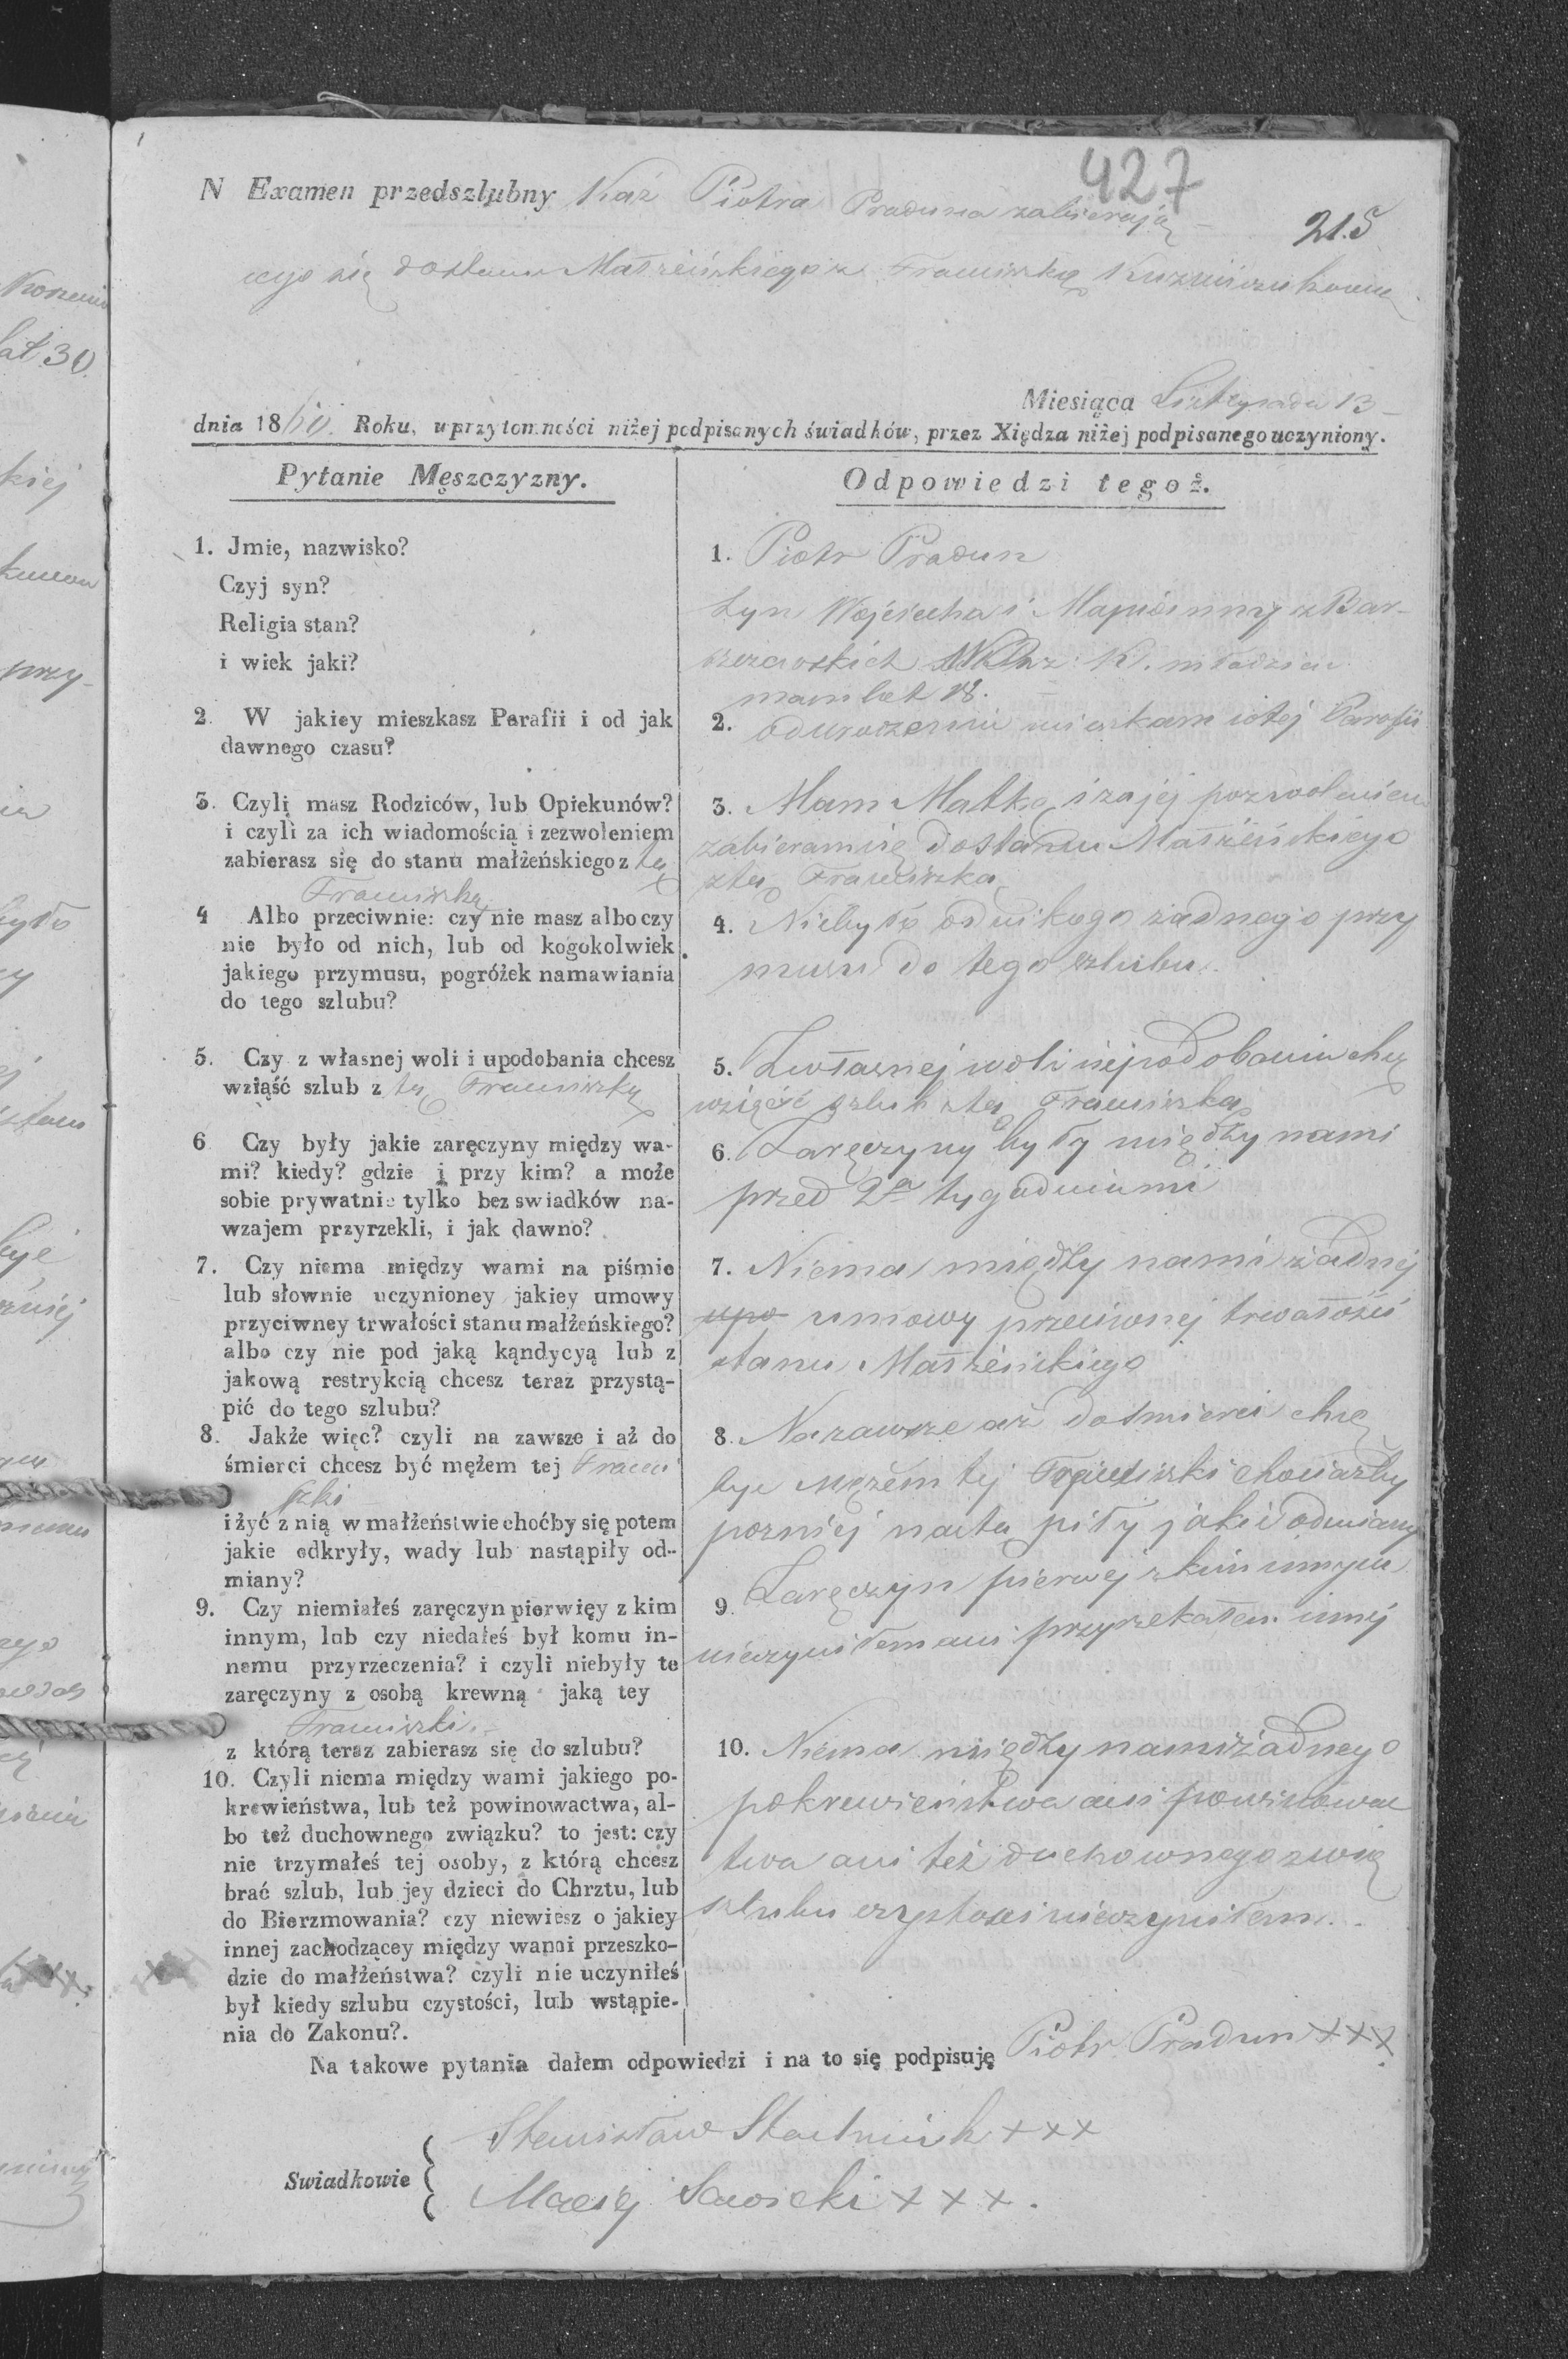 427
N Examen przedszlubny Kaź Piotra Praduna zabierają
21.5
cego się do stanu Małżeńskiego z Franciszką
Miesiąca Listopada 13
dnia 1860. Roku, w przytomności niżej podpisanych świadków, przez Xiędza niżej podpisanego uczyniony.
Pytanie Męszczyzny.
1. Jmie, nazwisko?
Czyj syn?
Religia stan?
i wiek jaki?
2. W jakiey mieszkasz Parafii i od jak
dawnego czasu?
3. Czyli masz Rodziców, lub Opiekunów?
i czyli za ich wiadomością i zezwoleniem
zabierasz się do stanu małżeńskiego z tą
Franciszką
4 Albo przeciwnie: czy nie masz albo czy
nie było od nich, lub od kogokolwiek
jakiego przymusu, pogróżek namawiania
do tego szlubu?
5. Czy z własnej woli i upodobania chcesz
wziąść szlub z tą Franciszką
6 Czy były jakie zaręczyny między wa-
mi? kiedy? gdzie i przy kim? a może
sobie prywatnie tylko bez swiadków na-
wzajem przyrzekli, i jak dawno?
7. Czy niema między wami na piśmie
lub słownie uczynioney jakiey umowy
przyciwney trwałości stanu małżeńskiego?
albo czy nie pod jaką kąndycyą lub z
jakową restrykcią chcesz teraz przystą-
pić do tego szlubu?
8. Jakże więc? czyli na zawsze i aż do
śmierci chcesz być mężem tej Franci
szki
i żyć z nią w małżeństwie choćby się potem
jakie odkryły, wady lub nastąpiły od-
miany?
9. Czy niemiałeś zaręczyn pierwięy z kim
innym, lub czy niedałeś był komu in-
nemu przyrzeczenia? i czyli niebyły te
zaręczyny z osobą krewną jaką tey
Franciszki.
z którą teraz zabierasz się do szlubu?
10. Czyli niema między wami jakiego po-
krewieństwa, lub też powinowactwa, al-
bo też duchownego związku? to jest: czy
nie trzymałeś tej osoby, z którą chcesz
brać szlub, lub jey dzieci do Chrztu, lub
do Bierzmowania? czy niewiesz o jakiey
innej zachodzącey między wami przeszko-
dzie do małżeństwa? czyli nie uczyniłeś
był kiedy szlubu czystości, lub wstąpie-
nia do Zakonu?.
Odpowiedzi tegoż.
1. Piotr Pradun
Syn Wojciecha i Maryanny z Bar-
młodzian
mam lat 18.
2. od urodzenia mieszkam w tej Parafii
3. Mam Matkę i za jej pozwoleniem
zabieram się do stanu Małżeńskiego
z tą Franciszką
4. Niebyło od nikogo żadnego przy
musu do tego szlubu.
5. Zwłasnej woli i upodobania chcę
wziąść szlub z tą Franciszką
6. Zaręczyny były między nami
przed 2a tygodniami
7. Niema między nami żadnej
upo umowy przeciwnej trwałości
stanu Małżeńskiego
8. Na zawsze aż do śmierci chcę
być mężem tej Franciszki chociażby
pozniej nastą piły jakie odmiany
9. Zaręczyn pierwej z kim innym
nieczyniłem ani przyrzekałem innej
10. Niema między nami żadnego
pokrewieństwa ani powinowac
twa ani też duchownego zwią
szlubu czystości nieczyniłem.
Na takowe pytania dałem odpowiedzi i na to się podpisuję Piotr Pradun +++
Swiadkowie
Stanisław +++
Maciej Sawicki +++.